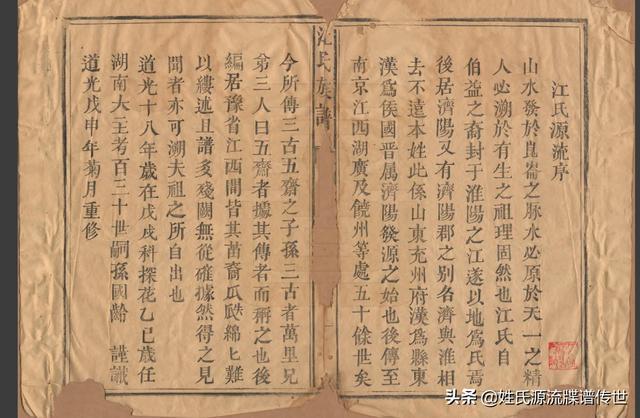 江氏源流序
山水發於崑崙之脉水必原於天一之精
人必溯於有生之祖理固然也江氏自
伯益之裔封于淮陽之江遂以地爲氏焉
後居濟陽又有濟陽郡之别名濟與淮相
去不遠本姓此係山東兖州府漢爲縣東
漢爲侯國晋属濟陽發源之始也後傳至
南京江西湖廣及饒州等處五十餘世矣
江氏族譜
今所傳三古五齋之子孫三古者萬里兄
弟三人曰五齋者據其傳者而稱之也後
編居豫省江西間皆其苗裔瓜瓞綿匕難
以縷述且譜多殘闕無從確據然得之見
聞者亦可溯夫祖之所自出也
道光十八年歲在戊戌科探花乙巳歲任
湖南大主考百三十世嗣孫國齡 謹識
道光戊申年菊月重修
头条 @姓氏源流牒谱传世